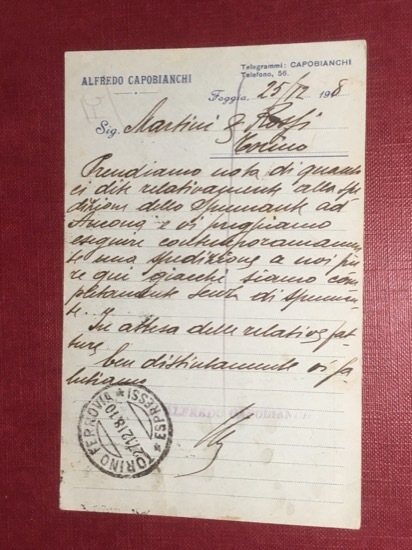 ALFREDO CAPOBIANCHI
Telegrammi: CAPOBIANCHI
Telefono, 56.
Foggia, 25/12 1918
Sig. Martini & Rossi
Torino
Prendiamo nota di quanto
ci dite relativamente alla spe
dizione dello Spumante ad
Ancona e vi preghiamo
eseguire contemporaneamen
te una spedizione a noi pu
re qui giacchè siamo com
pletamente senza di spuman
te.
In attesa delle relative fat
ture,
ben distintamente vi sa
lutiamo
ALFREDO CAPOBIANCHI
TORINO FERROVIA
ESPRESSI
27.12.18.10